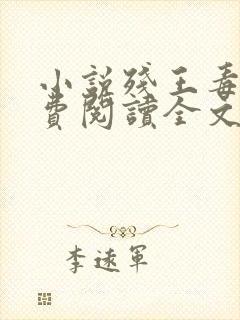 小說殘王毒
費閱讀全文
李遠軍